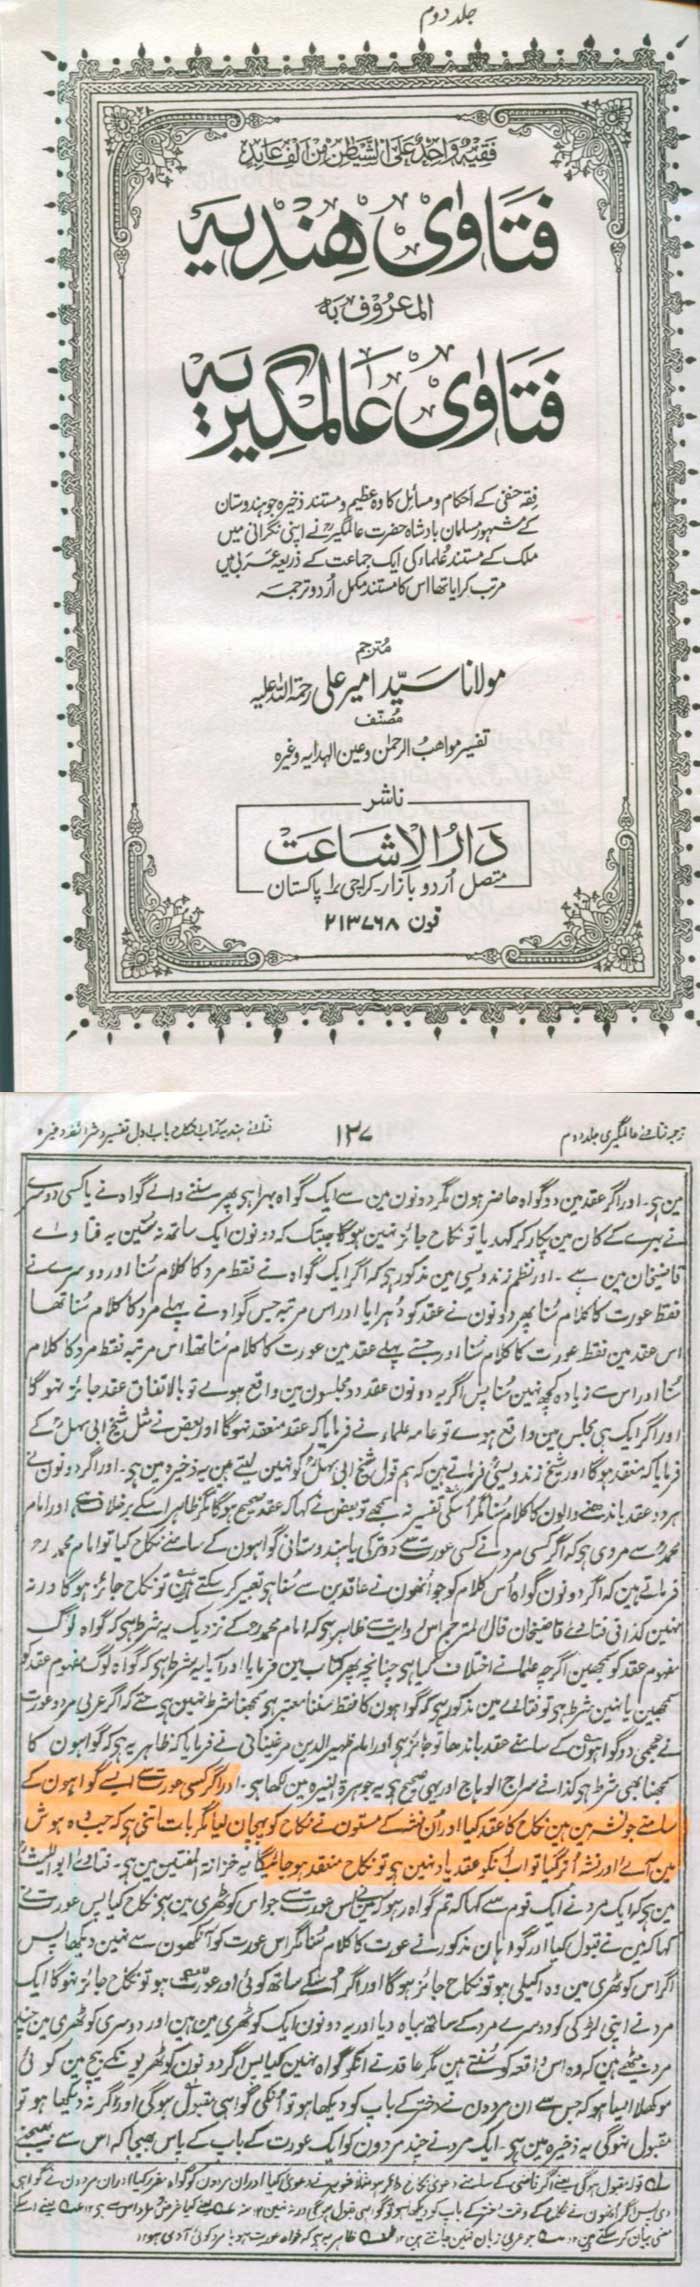 جلد دوم
فقیہ واحد علی الشیطٰن من الف عابد
فتاوٰی ہندیہ
المعروف بہ
فتاوٰی عالمگیریہ
فقہ حنفی کے احکام و مسائل کا وہ عظیم و مستند ذخیرہ جو ہندوستان
کے مشہور مسلمان بادشاہ حضرت عالمگیرؒ نے اپنی نگرانی میں
ملک کے مستند علماء کی ایک جماعت کے ذریعہ عربی میں
مرتب کرایا تھا اس کا مستند مکمل اُردو ترجمہ
مترجم
مولانا سیّد امیر علی رحمۃ اللہ علیہ
مصنف
تفسیر مواھب الرحمٰن و عین الہدایہ وغیرہ
ناشر
دَارُ الاِشَاعَت
متصل اُردو بازار۔ کراچی ۱ پاکستان
فون ۲۱۳۷۶۸
ترجمہ فتاوے عالمگیری جلد دوم
۱۳۷
فتاوے ہندیہ کتاب النکاح باب اول تفسیر و شرائط وغیرہ
مین ہی۔ اور اگر عقد مین دو گواہ حاضر ہون مگر دونون مین سے ایک گواہ بہرا ہی پھر سننے والے گواہ نے یا کسی دوسرے
نے بہرے کے کان مین پکار کر کہدیا تو نکاح جائز نہین ہوگا جبتک کہ دونون ایک ساتھ نہ سنین یہ فتاوے
قاضیخان مین ہے۔ اور نظم زندویسی مین مذکور ہی کہ اگر ایک گواہ نے فقط مرد کا کلام سُنا اور دوسرے نے
فقط عورت کا کلام سُنا پھر دونون نے عقد کو دُہرایا اور اس مرتبہ جس گواہ نے پہلے مرد کا کلام سُنا تھا
اس عقد مین فقط عورت کا کلام سُنا اور جسنے پہلے عقد مین عورت کا کلام سُنا تھا اس مرتبہ فقط مرد کا کلام
سُنا اور اس سے زیادہ کچھ نہین سُنا پس اگر یہ دونون عقد دو مجلسون مین واقع ہوے تو بالاتفاق عقد جائز نہوگا
اور اگر ایک ہی مجلس مین واقع ہوے تو عامہ علماء نے فرمایا کہ عقد منعقد نہوگا اور بعض نے مثل شیخ ابی سہل کے
فرمایا کہ منعقد ہوگا اور شیخ زندویسیؒ فرماتے ہین کہ ہم قول شیخ ابی سہلؒ کو نہین لیتے ہین یہ ذخیرہ مین ہی۔ اور اگر دونون نے
ہر دو عقد باندھنے والون کا کلام سُنا مگر اُسکی تفسیر نہ سمجھے تو بعض نے کہا کہ عقد صحیح ہوگا مگر ظاہر اسکے برخلاف ہے اور امام
محمدؒ سے مروی ہی کہ اگر کسی مرد نے کسی عورت سے دو ترکی یا ہندوستانی گواہون کے سامنے نکاح کیا تو امام محمد رح
فرماتے ہین کہ اگر دونون گواہ اُس کلام کو جو اُنھون نے عاقدین سے سُنا ہی تعبیر کر سکتے ہین تو نکاح جائز ہوگا ورنہ
نہین کذا فی فتاوے قاضیخان قال المترجم اس روایت سے ظاہر ہی کہ امام محمدؒ کے نزدیک یہ شرط ہی کہ گواہ لوگ
مفہوم عقد کو سمجھین اگرچہ علما نے اختلاف کیا ہی چنانچہ پھر کتاب مین فرمایا اور آیا یہ شرط ہی کہ گواہ لوگ مفہوم عقد کو
سمجھین یا نہین شرط ہی تو فتاوے مین مذکور ہی کہ گواہون کا فقط سننا معتبر ہی سمجھنا شرط نہین ہی حتے کہ اگر عربی مرد و عورت
نے عجمی دو گواہون کے سامنے عقد باندھا تو جائز ہی اور امام ظہیر الدین مرغینانی نے فرمایا کہ ظاہر یہ ہی کہ گواہون کا
سمجھنا بھی شرط ہی کذا فے سراج الوہاج اور یہی صحیح ہی یہ جوہرۃ النیرہ مین لکھا ہی۔ اور اگر کسی عورت سے ایسے گواہون کے
سامنے جو نشہ مین ہین نکاح کا عقد کیا اور اُن نشہ کے مستون نے نکاح کو پہچان لیا مگر بات اتنی ہی کہ جب وہ ہوش
مین آئے اور نشہ اُتر گیا تو اب اُنکو عقد یاد نہین ہی تو نکاح منعقد ہو جائیگا یہ خزانۃ المفتین مین ہی۔ فتاوے ابو اللیثؒ
مین ہی کہ ایک مرد نے ایک قوم سے کہا کہ تم گواہ رہو کہ مینے اُس عورت سے جو اس کوٹھری مین ہی نکاح کیا پس عورت نے
کہا کہ مین نے قبول کیا اور گواہان مذکور نے عورت کا کلام سُنا مگر اس عورت کو آنکھون سے نہین دیکھا پس
اگر اس کوٹھری مین وہ اکیلی ہو تو نکاح جائز ہوگا اور اگر اُسکے ساتھ کوئی اور عورت ہو تو نکاح جائز نہوگا ایک
مرد نے اپنی لڑکی کو دوسرے مرد کے ساتھ بیاہ دیا اور یہ دونون ایک کوٹھری مین ہین اور دوسری کوٹھری مین چند
مرد بیٹھے ہین کہ وہ اس واقعہ کو سُنتے ہین مگر عاقد نے انکو گواہ نہین کیا پس اگر دونون کوٹھریونکے بیچ مین کوئی
موکھلا ایسا ہو کہ جس سے ان مردون نے دختر کے باپ کو دیکھا ہو تو اُنکی گواہی مقبول ہوگی اور اگر نہ دیکھا ہو تو
مقبول نہوگی یہ ذخیرہ مین ہی۔ ایک مرد نے چند مردون کو ایک عورت کے باپ کے پاس بھیجا کہ اس سے